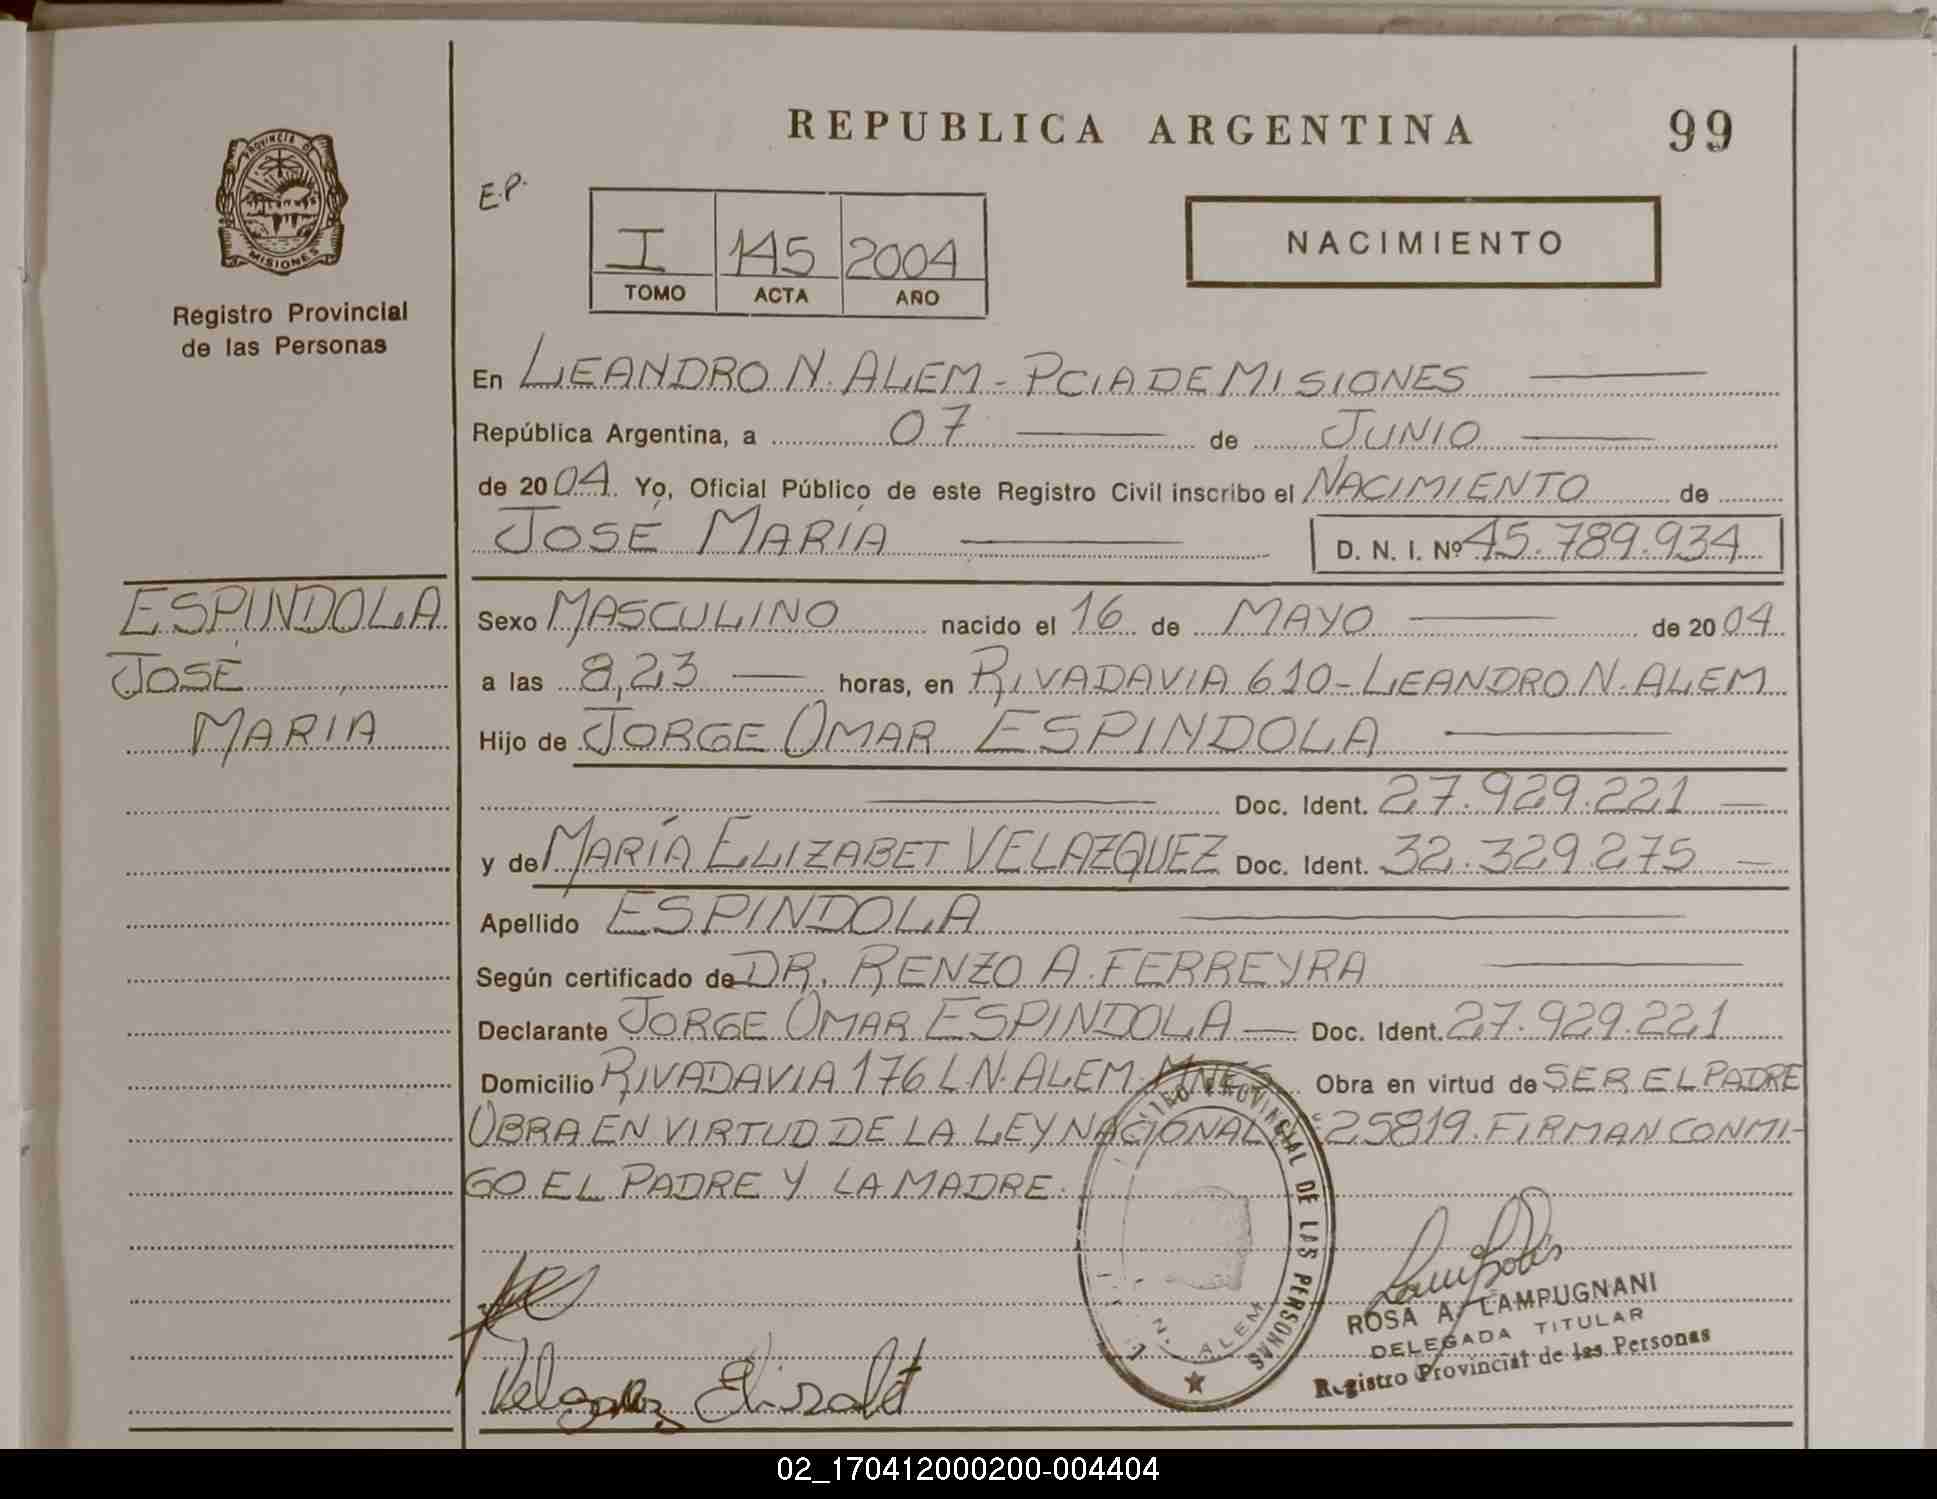 REPUBLICA ARGENTINA
99
PROVINCIA D
MISIONES
Registro Provincial
de las Personas
E.P.
I 145 2004
TOMO ACTA AÑO
NACIMIENTO
En LEANDRO N. ALEM - PCIA DE MISIONES
República Argentina, a 07 de JUNIO
de 2004. Yo, Oficial Público de este Registro Civil inscribo el NACIMIENTO de
JOSÉ MARÍA
D. N. I. Nº 45.789.934
ESPINDOLA
JOSÉ
MARIA
Sexo MASCULINO nacido el 16 de MAYO de 2004
a las 8,23 horas, en RIVADAVIA 610 - LEANDRO N. ALEM
Hijo de JORGE OMAR ESPINDOLA
Doc. Ident. 27.929.221
y de MARÍA ELIZABET VELAZQUEZ Doc. Ident. 32.329.275
Apellido ESPINDOLA
Según certificado de DR. RENZO A. FERREYRA
Declarante JORGE OMAR ESPINDOLA Doc. Ident. 27.929.221
Domicilio RIVADAVIA 176 L.N. ALEM. MNES Obra en virtud de SER EL PADRE
OBRA EN VIRTUD DE LA LEY NACIONAL Nº 25819. FIRMAN CONMI-
GO EL PADRE Y LA MADRE.
PROVINCIAL DE LAS PERSONAS
N. ALEM
Velazquez Elizabet
ROSA A. LAMPUGNANI
DELEGADA TITULAR
Registro Provincial de las Personas
02_170412000200-004404